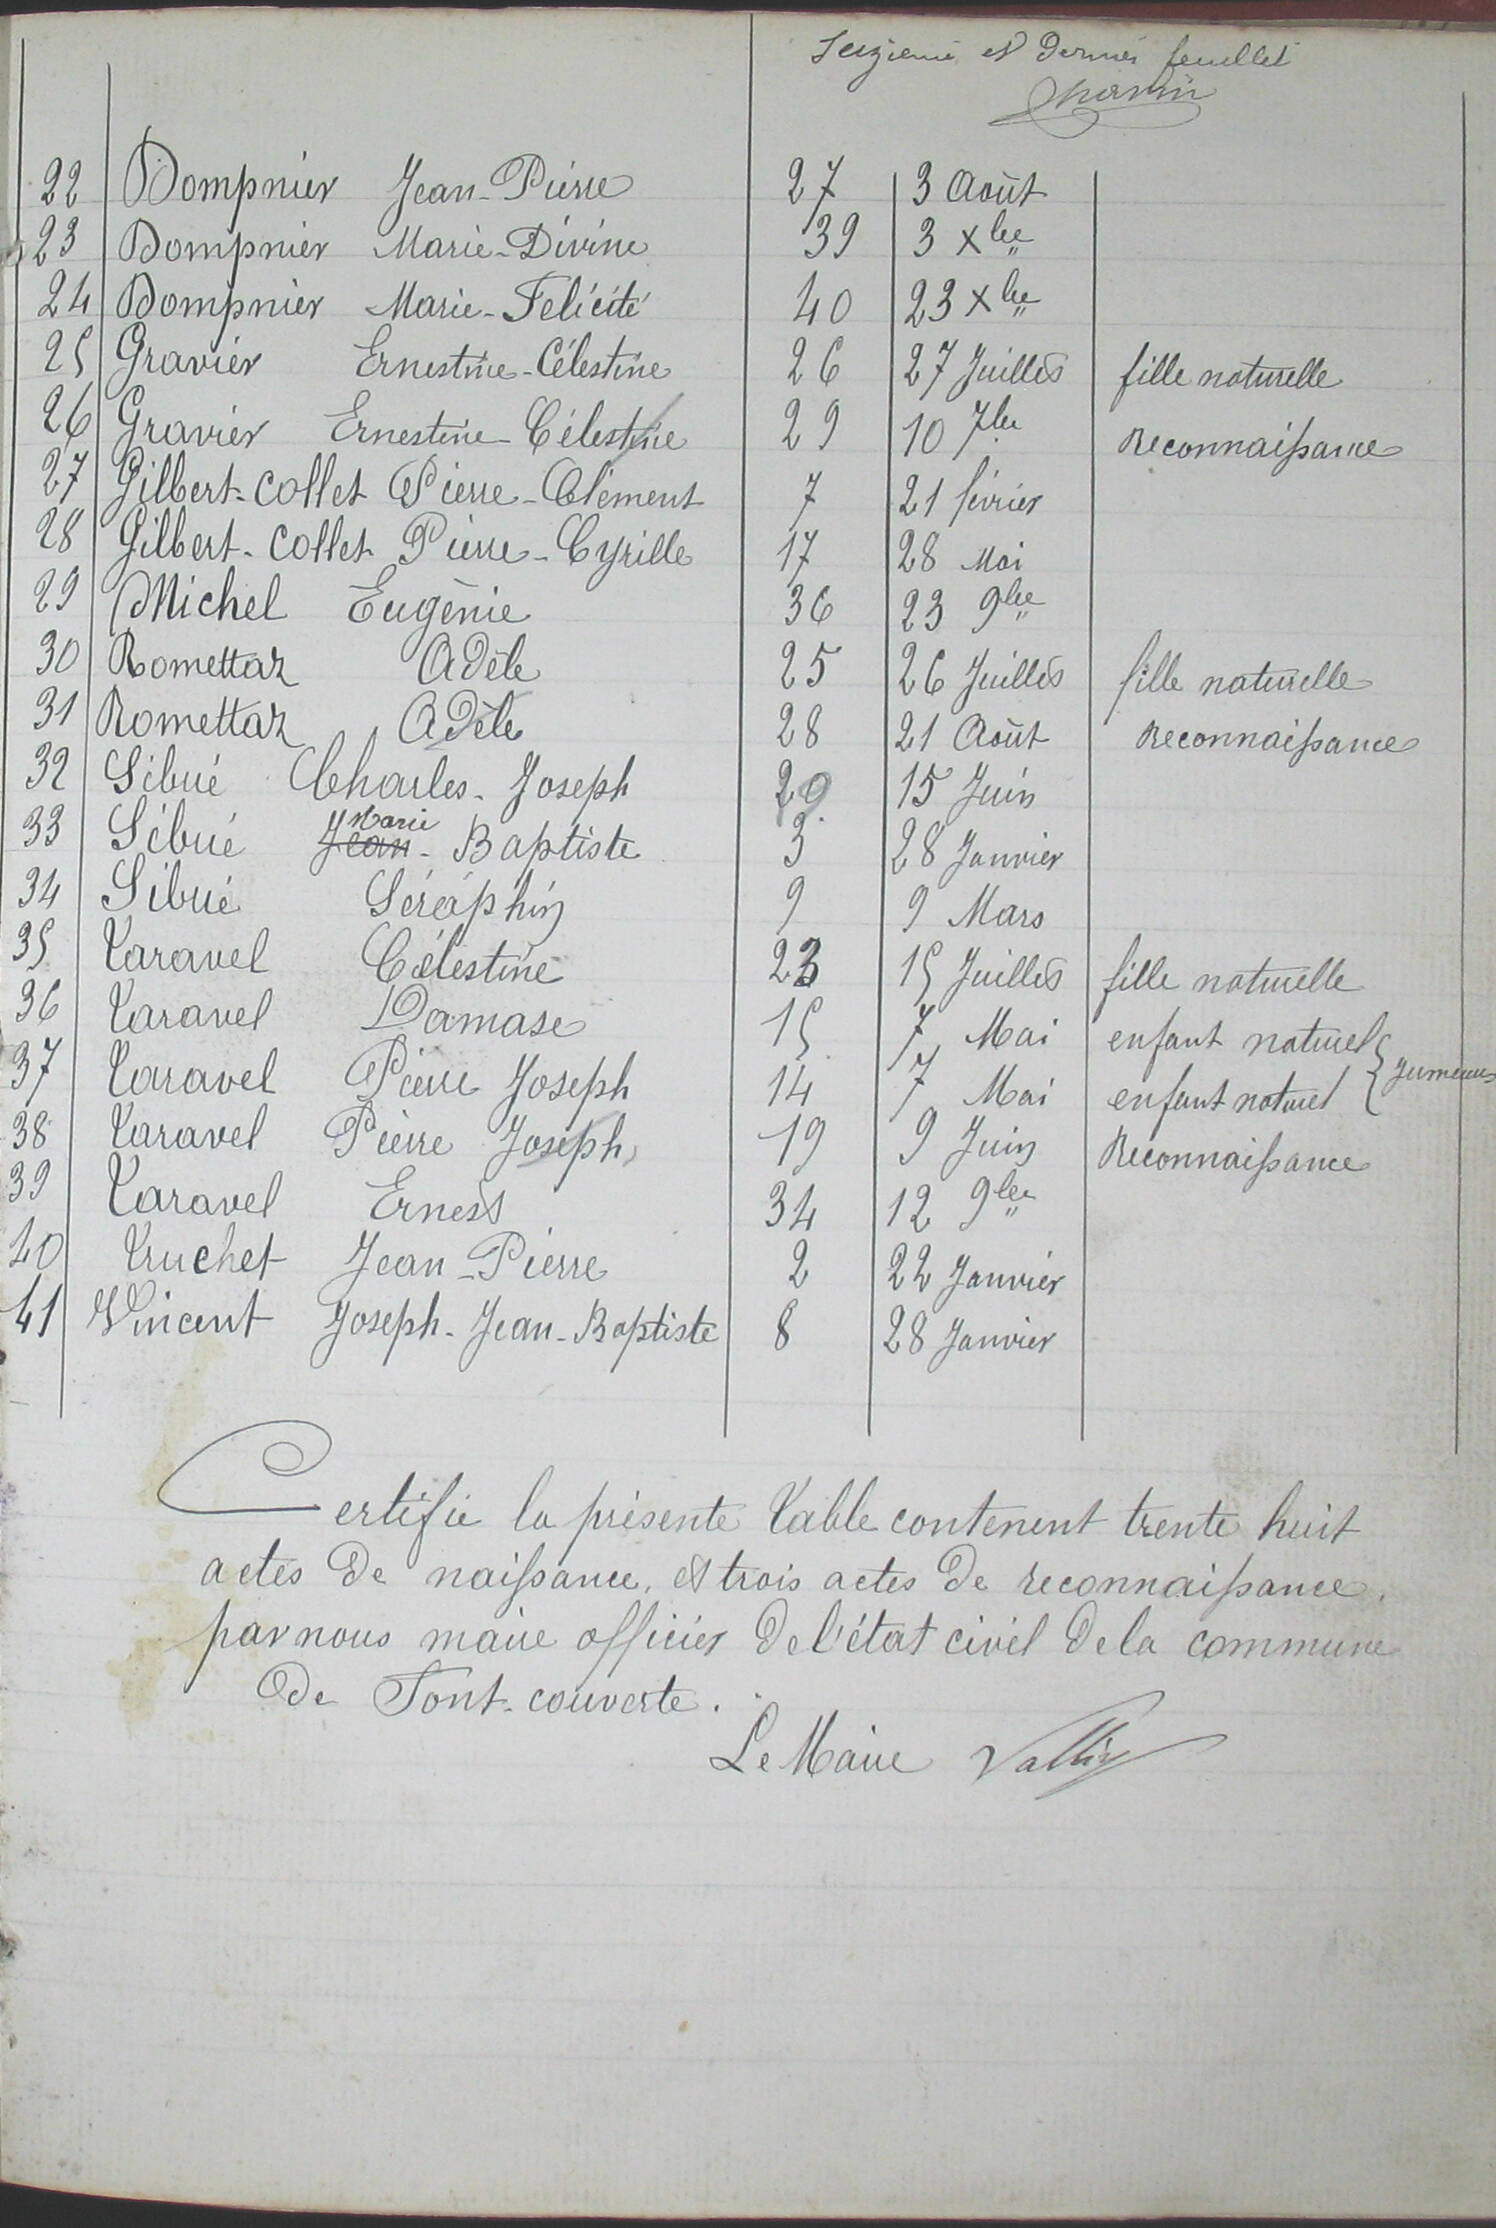 Seizième et dernier feuillet
22 Dompnier Jean-Pierre 27 3 Août
23 Dompnier Marie-Divine 39 3 Xbre
24 Dompnier Marie-Felicité 40 23 Xbre
25 Gravier Ernestine-Célestine 26 27 Juillet fille naturelle
26 Gravier Ernestine-Célestine 29 10 7bre Reconnaissance
27 Gilbert-collet Pierre-Clément 7 21 février
28 Gilbert-collet Pierre-Cyrille 17 28 Mai
29 Michel Eugénie 36 23 9bre
30 Romettaz Adèle 25 26 Juillet fille naturelle
31 Romettaz Adèle 28 21 Août Reconnaissance
32 Sibué Charles-Joseph 20 15 Juin
33 Sibué Jean Marie-Baptiste 3 28 Janvier
34 Sibué Séraphin 9 9 Mars
35 Taravel Célestine 23 15 Juillet fille naturelle
36 Taravel Damase 15 7 Mai enfant naturel } jumeaux
37 Taravel Pierre Joseph 14 7 Mai enfant naturel
38 Taravel Pierre Joseph 19 9 Juin Reconnaissance
39 Taravel Ernest 34 12 9bre
40 Truchet Jean-Pierre 2 22 Janvier
41 Vincent Joseph-Jean-Baptiste 8 28 Janvier
Certifie la présente Table contenent trente huit
actes de naissance, et trois actes de reconnaissance,
par nous maire officier de l'état civil de la commune
de Font-couverte.
Le Maire